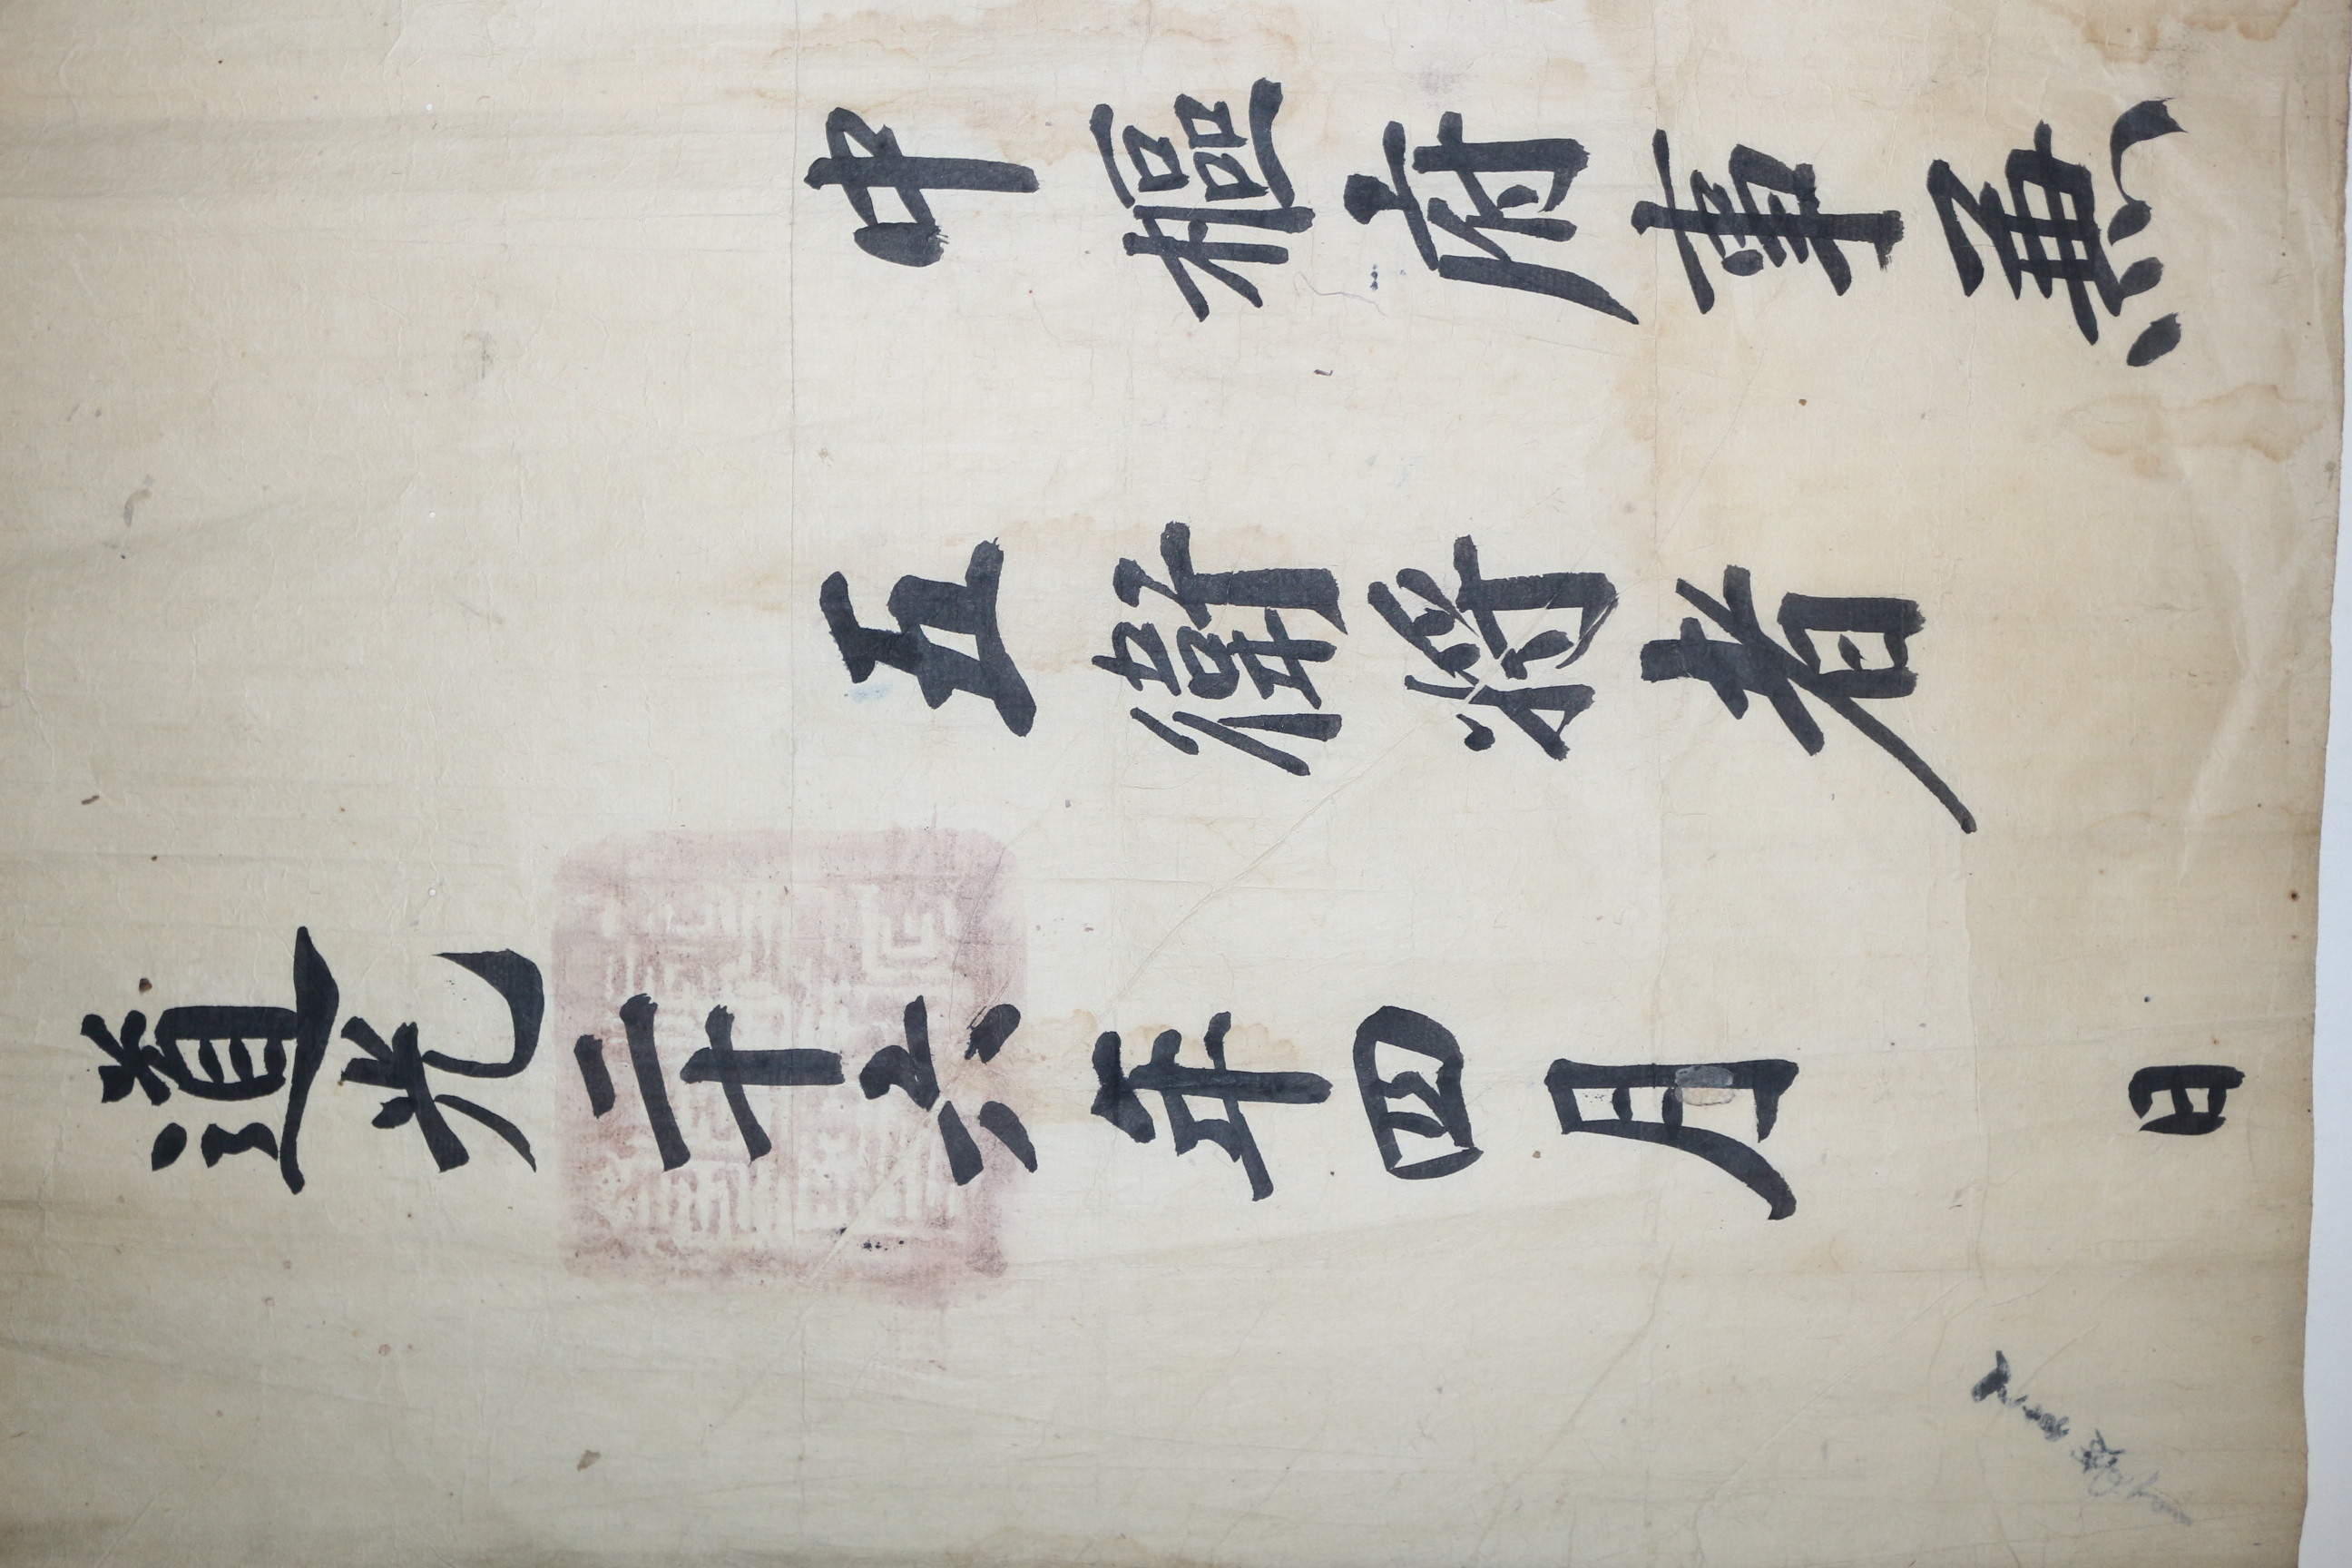 中樞府事兼
五衛將者
道光二十六年四月 日